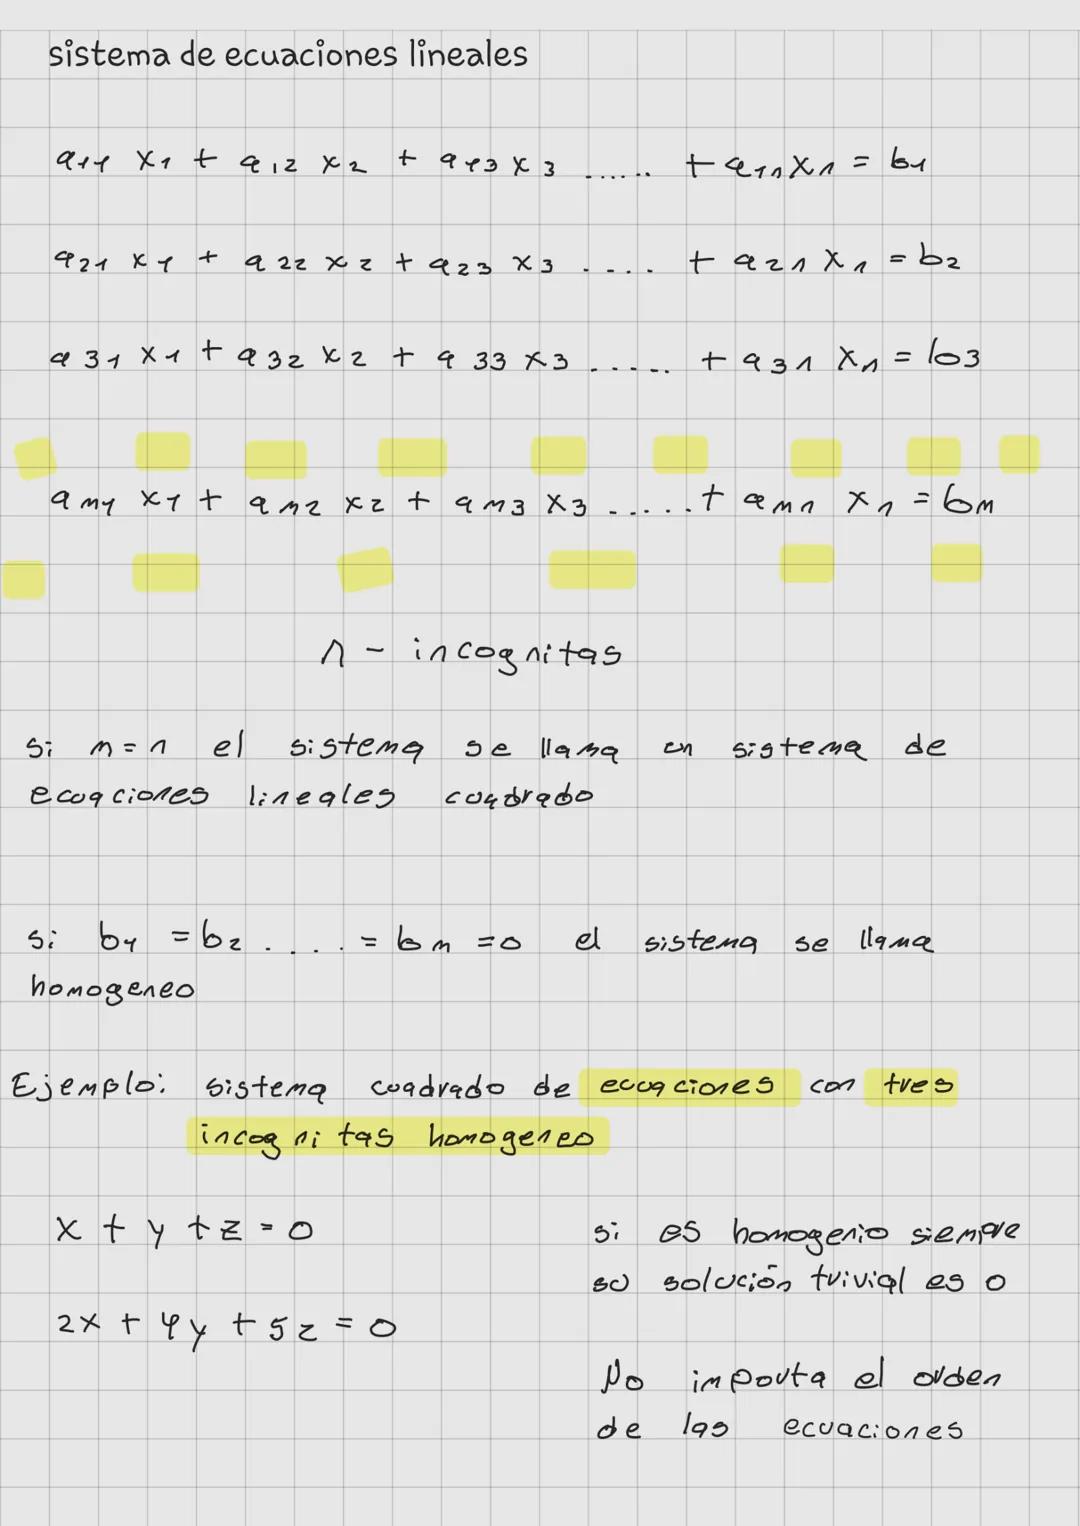 sistema de ecuaciones lineales
a11 x1 + a12 x2 + a13 x3 ...... + a1n xn = b1
a21 x1 + a22 x2 + a23 x3 .... + a2n xn = b2
a31 x1 + a32 x2 + a33 x3 ..... + a3n xn = b3
am1 x1 + am2 x2 + am3 x3 ..... + amn xn = bm
n - incognitas
si m = n el sistema se llama un sistema de
ecuaciones lineales cuadrado
si b1 = b2 .... = bm = 0 el sistema se llama
homogeneo
Ejemplo: sistema cuadrado de ecuaciones con tres
incognitas homogeneo
x + y + z = 0
si es homogenio siempre
su solución trivial es 0
2x + 4y + 5z = 0
No importa el orden
de las ecuaciones